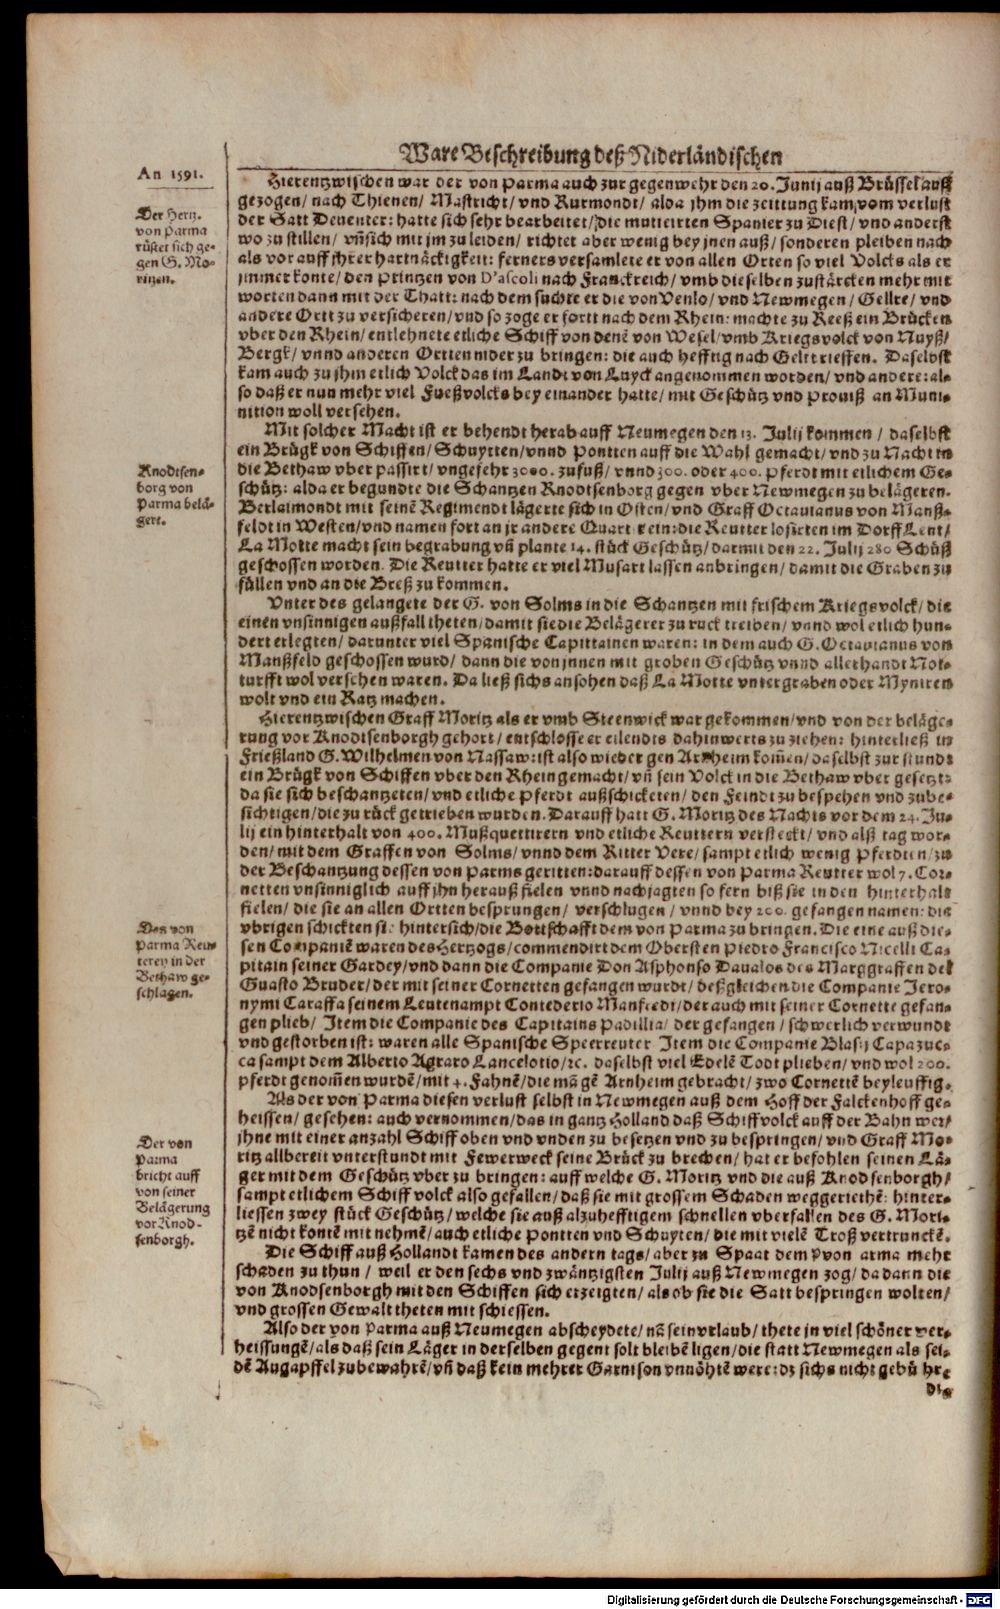 Ware Beschreibung deß Niderländischen
An 1591.
Hierentzwischen war der von Parma auch zur gegenwehr den 20. Junij auß Brüssel auß
gezogen/ nach Thienen/ Mastricht/ vnd Rurmondt/ alda jhm die zeittung kam, vom verlust
der Satt Deuenter: hatte sich sehr bearbeitet/ die mutierten Spanier zu Diest/ vnd anderst
wo zu stillen/ vñ sich mit jm zu leiden/ richtet aber wenig bey jnen auß/ sonderen pleiben nach
als vor auff jhrer hartnäckigkeit: ferners versamlete er von allen Orten so viel Volcks als er
jmmer konte/ den Printzen von D'ascoli nach Franckreich/ vmb dieselben zustärcken mehr mit
worten dann mit der Thatt: nach dem suchte er die von Venlo/ vnd Newmegen/ Gellre/ vnd
andere Ortt zu versicheren/ vnd so zoge er fortt nach dem Rhein: machte zu Reeß ein Brücken
vber den Rhein/ entlehnete etliche Schiff von denē von Wesel/ vmb Kriegsvolck von Nuyß/
Bergk/ vnnd anderen Ortten nider zu bringen: die auch hefftig nach Gelt rieffen. Daselbst
kam auch zu jhm etlich Volck das im Landt von Luyck angenommen worden/ vnd andere: al-
so daß er nun mehr viel Fueßvolcks bey einander hatte/ mit Geschütz vnd Proviß an Muni-
nition woll versehen.
Der Hertz.
von Parma
rüstet sich ge-
gen G. Mo-
ritzen.
Mit solcher Macht ist er behendt herab auff Neumegen den 13. Julij kommen/ daselbst
ein Brügk von Schiffen/ Schuytten/ vnnd Pontten auff die Wahl gemacht/ vnd zu Nacht in
die Bethaw vber passirt/ vngefehr 3000. zufuß/ vnnd 300. oder 400. Pferdt mit etlichem Ge-
schütz: alda er begundte die Schantzen Knodtsenborg gegen vber Newmegen zu belägeren.
Berlaimondt mit seinē Regimendt lägerte sich in Osten/ vnd Graff Octauianus von Manß-
feldt in Westen/ vnd namen fort an jr andere Quartirein: die Reutter losirten im Dorff Lent/
La Motte macht sein begrabung vñ plante 14. stück Geschütz/ darmit den 22. Julij 280 Schüß
geschossen worden. Die Reutter hatte er viel Musart lassen anbringen/ damit die Graben zu
füllen vnd an die Breß zu kommen.
Knodtsen-
borg von
Parma belä-
gert.
Vnter des gelangete der G. von Solms in die Schantzen mit frischem Kriegsvolck/ die
einen vnsinnigen außfall theten/ damit sie die Belägerer zu ruck treiben/ vnnd wol etlich hun-
dert erlegten/ darunter viel Spanische Capittainen waren: in dem auch G. Octavianus von
Manßfeld geschossen wurd/ dann die von jnnen mit groben Geschütz vnnd allerhandt Not-
turfft wol versehen waren. Da ließ sichs ansohen daß La Motte vntergraben oder Myniren
wolt vnd ein Katz machen.
Hierentzwischen Graff Moritz als er vmb Steenwick war gekommen/ vnd von der beläge-
rung vor Knodtsenborgh gehort/ entschlosse er eilendts dahinwerts zu ziehen: hinterließ in
Frießland G. Wilhelmen von Nassaw: ist also wieder gen Arnheim kom̄en/ daselbst zur stundt
ein Brügk von Schiffen vber den Rhein gemacht/ vñ sein Volck in die Bethaw vber gesetzt:
da sie sich beschantzeten/ vnd etliche Pferdt außschicketen/ den Feindt zu bespehen vnd zube-
sichtigen/ die zu rück getrieben wurden. Darauff hatt G. Moritz des Nachts vor dem 24. Ju-
lij ein hinterhalt von 400. Mußquettirern vnd etliche Reuttern versteckt/ vnd alß tag wor-
den/ mit dem Graffen von Solms/ vnnd dem Ritter Vere/ sampt etlich wenig Pferdten/ zu
der Beschantzung dessen von Parms geritten: darauff dessen von Parma Reutter wol 7. Cor-
netten vnsinniglich auff jhn herauß fielen vnnd nachjagten so fern biß sie in den hinterhalt
fielen/ die sie an allen Ortten besprungen/ verschlugen/ vnnd bey 200. gefangen namen: die
vbrigen schickten sie hintersich/ die Bottschafft dem von Parma zu bringen. Die eine auß die-
sen Companiē waren des Hertzogs/ commendirt dem Obersten Piedro Francisco Nicelli Ca-
pitain seiner Gardey/ vnd dann die Companie Don Asphonso Daualos des Marggraffen del
Guasto Bruder/ der mit seiner Cornetten gefangen wurdt/ deßgleichen die Companie Jero-
nymi Caraffa seinem Leutenampt Contederio Manfredt/ der auch mit seiner Cornette gefan-
gen plieb/ Item die Companie des Capitains Padillia/ der gefangen/ schwerlich verwundt
vnd gestorben ist: waren alle Spanische Speerreuter Item die Companie Blasij Capazuc-
ca sampt dem Alberto Agraro Lancelotio/ rc. daselbst viel Edelē Todt plieben/ vnd wol 200.
pferdt genom̄en wurdē/ mit 4. Fahnē/ die mā gē Arnheim gebracht/ zwo Cornettē beyleuffig.
Des von
Parma Reu-
terey in der
Bethaw ge-
schlagen.
Als der von Parma diesen verlust selbst in Newmegen auß dem Hoff der Falckenhoff ge-
heissen/ gesehen: auch vernommen/ das in gantz Holland daß Schiffvolck auff der Bahn wer/
jhne mit einer anzahl Schiff oben vnd vnden zu besetzen vnd zu bespringen/ vnd Graff Mo-
ritz allbereit vnterstundt mit Fewerweck seine Brück zu brechen/ hat er befohlen seinen Lä-
ger mit dem Geschütz vber zu bringen: auff welche G. Moritz vnd die auß Knodsenborgh/
sampt etlichem Schiff volck also gefallen/ daß sie mit grossem Schaden weggeriethē: hinter-
liessen zwey stück Geschütz/ welche sie auß alzuhefftigem schnellen vberfallen des G. Mori-
tzē nicht kontē mit nehmē/ auch etliche Pontten vnd Schuyten/ die mit vielē Troß vertrunckē.
Der von
Parma
bricht auff
von seiner
Belägerung
vor Knod-
senborgh.
Die Schiff auß Hollandt kamen des andern tags/ aber zu Spaat dem Pvon arma mehr
schaden zu thun/ weil er den sechs vnd zwäntzigsten Julij auß Newmegen zog/ da dann die
von Knodsenborgh mit den Schiffen sich erzeigten/ als ob sie die Satt bespringen wolten/
vnd grossen Gewalt theten mit schiessen.
Also der von Parma auß Neumegen abscheydete/ nā sein vrlaub/ thete in viel schöner ver-
heissungē/ als daß sein Läger in derselben gegent solt bleibē ligen/ die statt Newmegen als sei-
dē Augapffel zubewahrē/ vñ daß kein mehrer Garnison vnnöhtē were: dz sichs nicht gebü hre
die
Digitalisierung gefördert durch die Deutsche Forschungsgemeinschaft - DFG